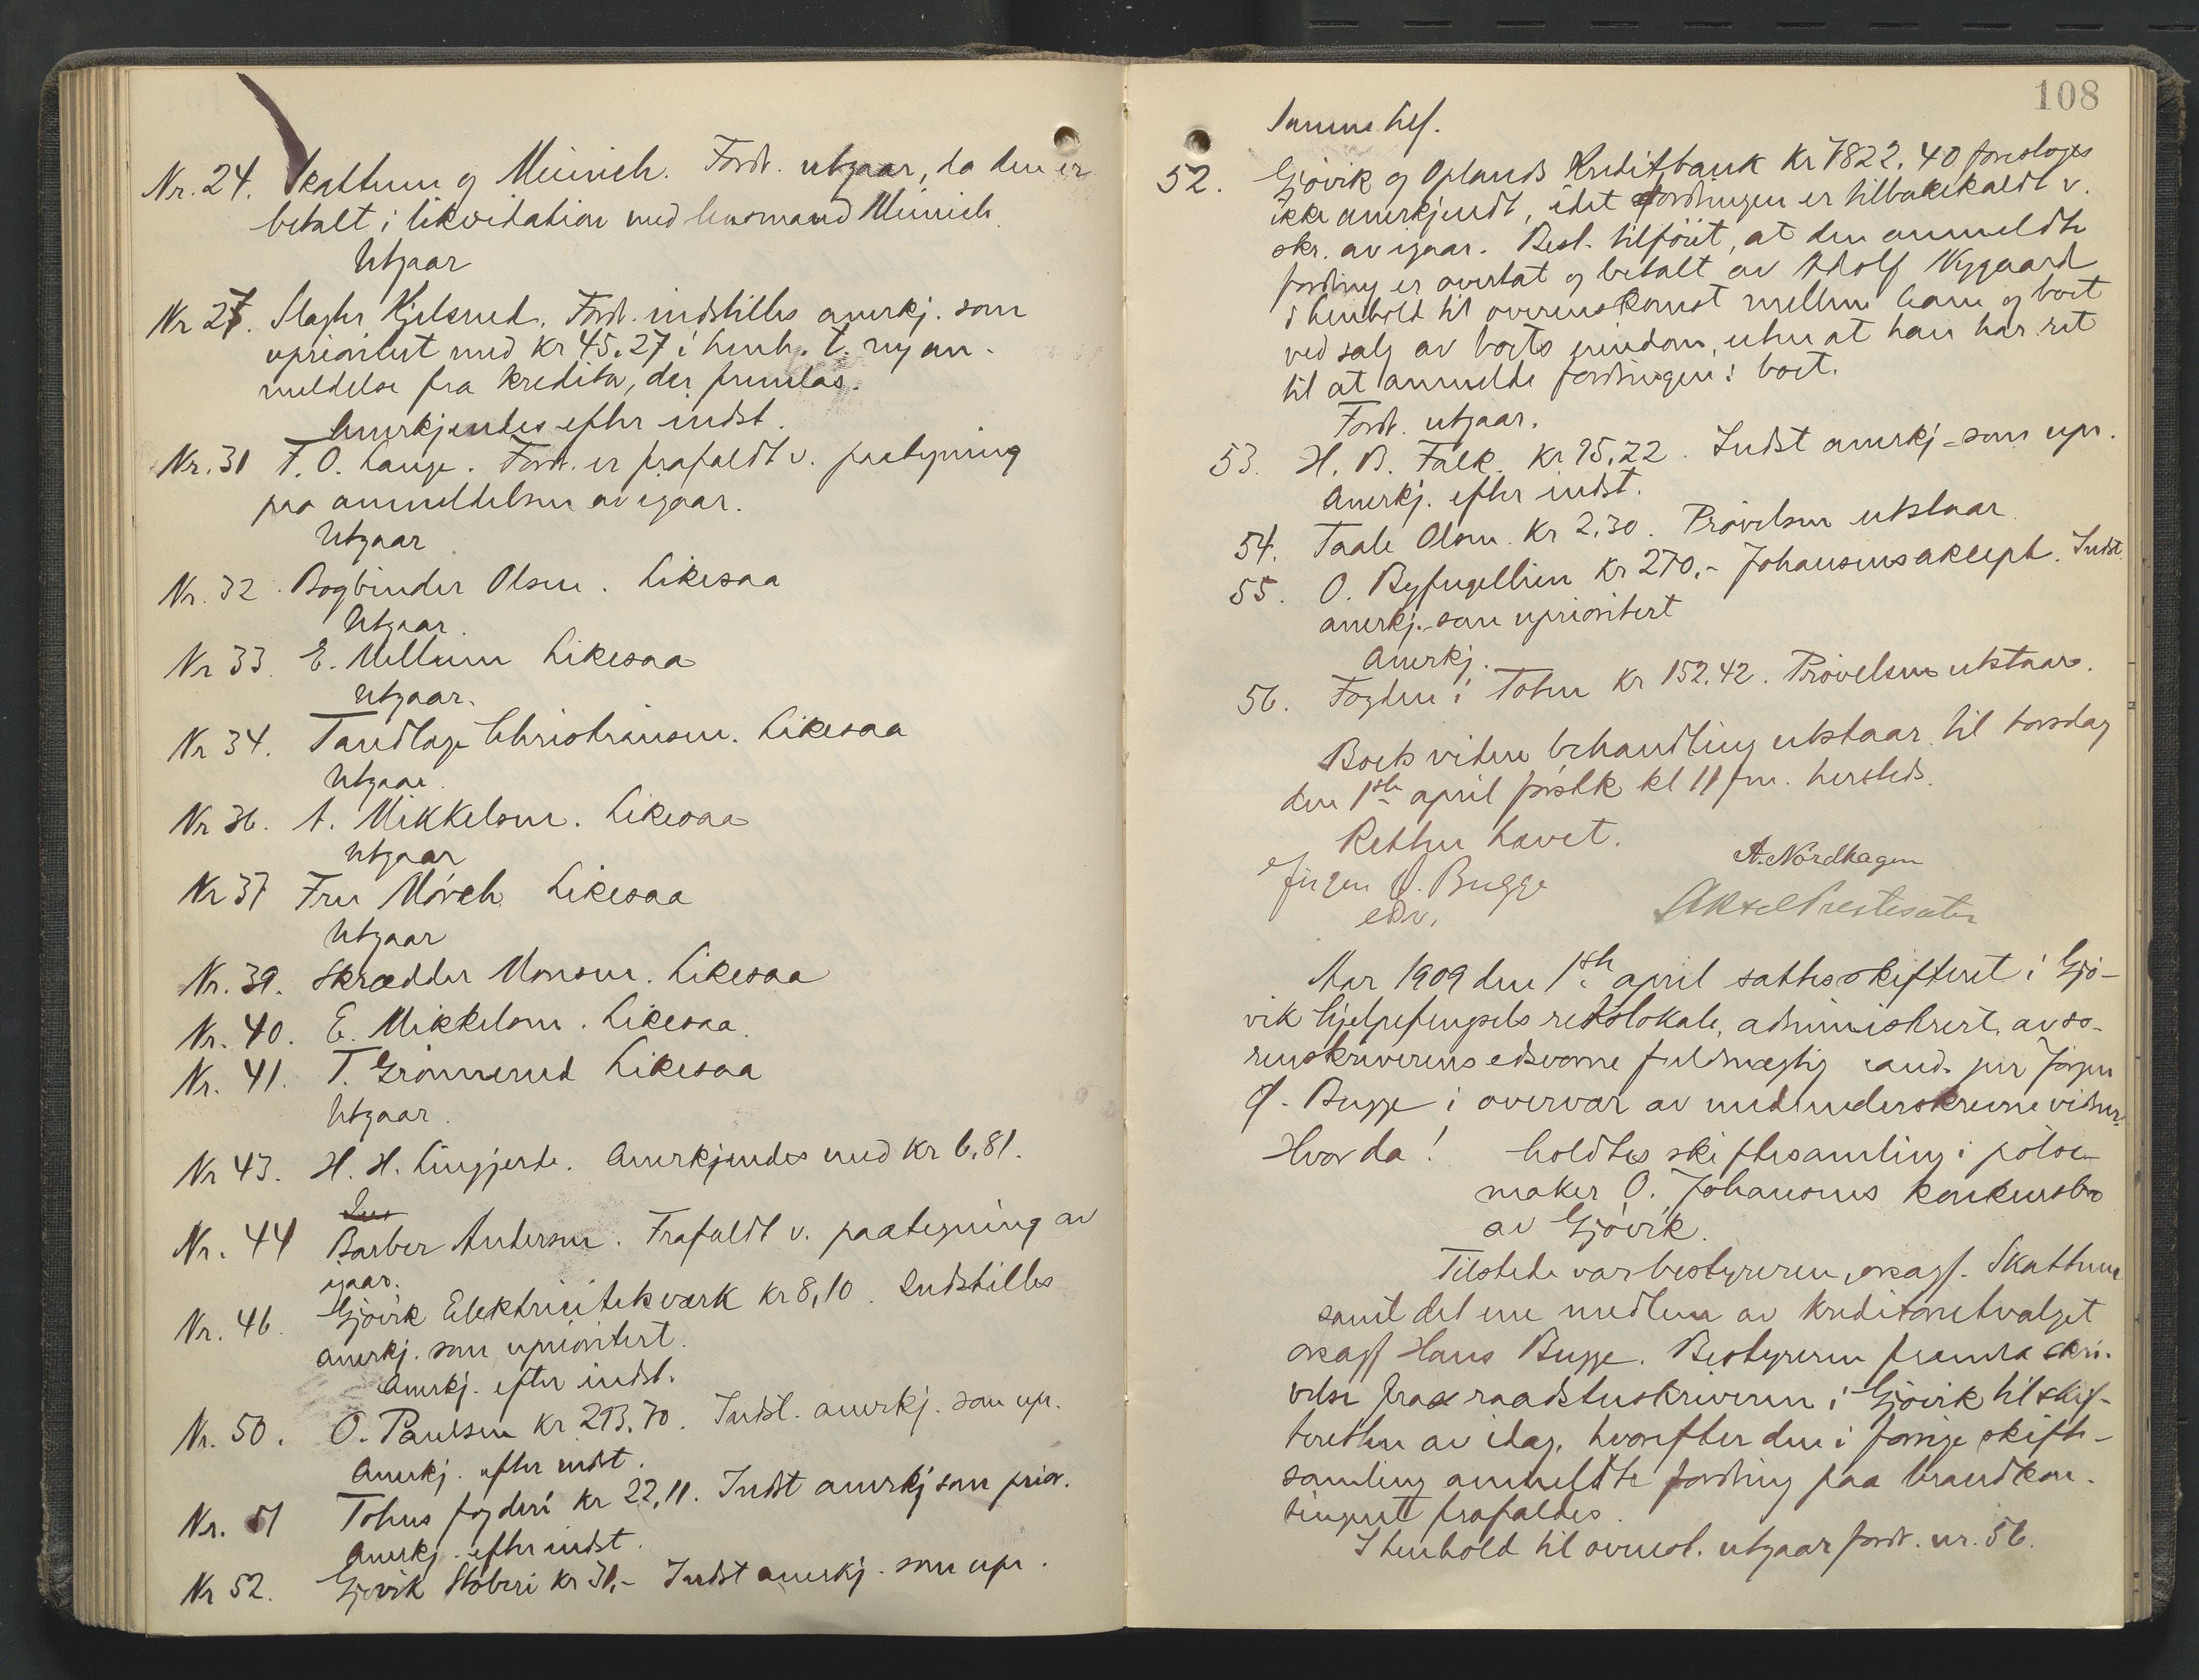 Nr. 24. Skattum og Minnich. Fordr. utgaar, da den er
betalt i likvidation med lensmand Minnich.
Utgaar
Nr 27. Slagter Kjelsrud. Fordr. indstilles anerkj. som
uprioritert med kr 45.27 i henh. t. ny an-
meldelse fra kreditor, der fremlas.
Anerkjendes efter indst.
Nr. 31 T. O. Lange. Fordr. er frafaldt v. paategning
paa anmeldelsen av igaar.
Utgaar
Nr. 32. Bogbinder Olsen. Likesaa
Utgaar.
Nr 33. E. Mellum Likesaa
Utgaar.
Nr 34. Tandlæge Christiansen. Likesaa
Utgaar.
Nr 36. A. Mikkelsen. Likesaa
Utgaar
Nr 37 Fru Mørch Likesaa
Utgaar
Nr. 39. Skrædder Monsen. Likesaa
Nr. 40. E. Mikkelsen. Likesaa.
Nr. 41. T. Grønnerud Likesaa
Utgaar.
Nr 43. H. H. Lingjerde. Anerkjendes med kr 6,81.
Nr. 44 Barber Andersen. Frafaldt v. paategning av
igaar.
Nr. 46. Gjøvik Elektricitetsværk kr 8,10. Indstilles
anerkj. som uprioritert.
Anerkj. efter indst.
Nr. 50. O. Paulsen kr 293.70. Indst. anerkj. som upr.
Anerkj. efter indst.
Nr. 51 Totens fogderi kr 22,11. Indst anerkj som prior.
Anerkj. efter indst.
Nr 52. Gjøvik Støberi kr 31,- Indst anerkj. som upr.
108
Samme hef.
52. Gjøvik og Oplands Kreditbank kr 7822.40 foreslages
ikke anerkjendt, idet fordringen er tilbakekaldt v.
skr. av igaar. Best. tilføiet, at den anmeldte
fordring er overtat og betalt av Adolf Nygaard
i henhold til overenskomst mellem ham og boet
ved salg av boets eiendom, uten at han har ret
til at anmelde fordringen i boet.
Fordr. utgaar.
53. H. B. Falk. kr 95,22. Indst anerkj. som upr.
Anerkj. efter indst.
54. Taale Olsen kr 2,30. Prøvelsen utstaar.
55. O. Byfuglien kr 270,- Johansens aksept. Indst.
anerkj. som uprioritert
Anerkj.
56. Fogden i Toten kr 152.42. Prøvelsen utstaar.
Boets videre behandling utstaar til torsdag
den 1ste april førstk kl 11 fm. hersteds.
Retten hævet.
Jørgen J. Bugge
edsv.
A. Nordhagen
Aksel Prestesæter
Aar 1909 den 1ste april sattes skifteret i Gjø-
vik hjelpefengsels retslokale, administrert av so-
renskriverens edsvorne fuldmægtig cand. jur Jørgen
J. Bugge i overvær av medunderskrevne vidner.
Hvor da! holdtes skiftesamling i pølse-
maker O. Johansens konkursbo
av Gjøvik.
Tilstede var bestyreren, oragf. Skattum
samt det ene medlem av kreditorutvalget
oragf Hans Bugge. Bestyreren fremla skri-
velse fra raadstuskriveren i Gjøvik til skif-
teretten av idag, hvorefter den i forrige skifte-
samling anmeldte fordring paa brandkon-
tingent frafaldes.
I henhold til ovenst. utgaar fordr. nr. 56.